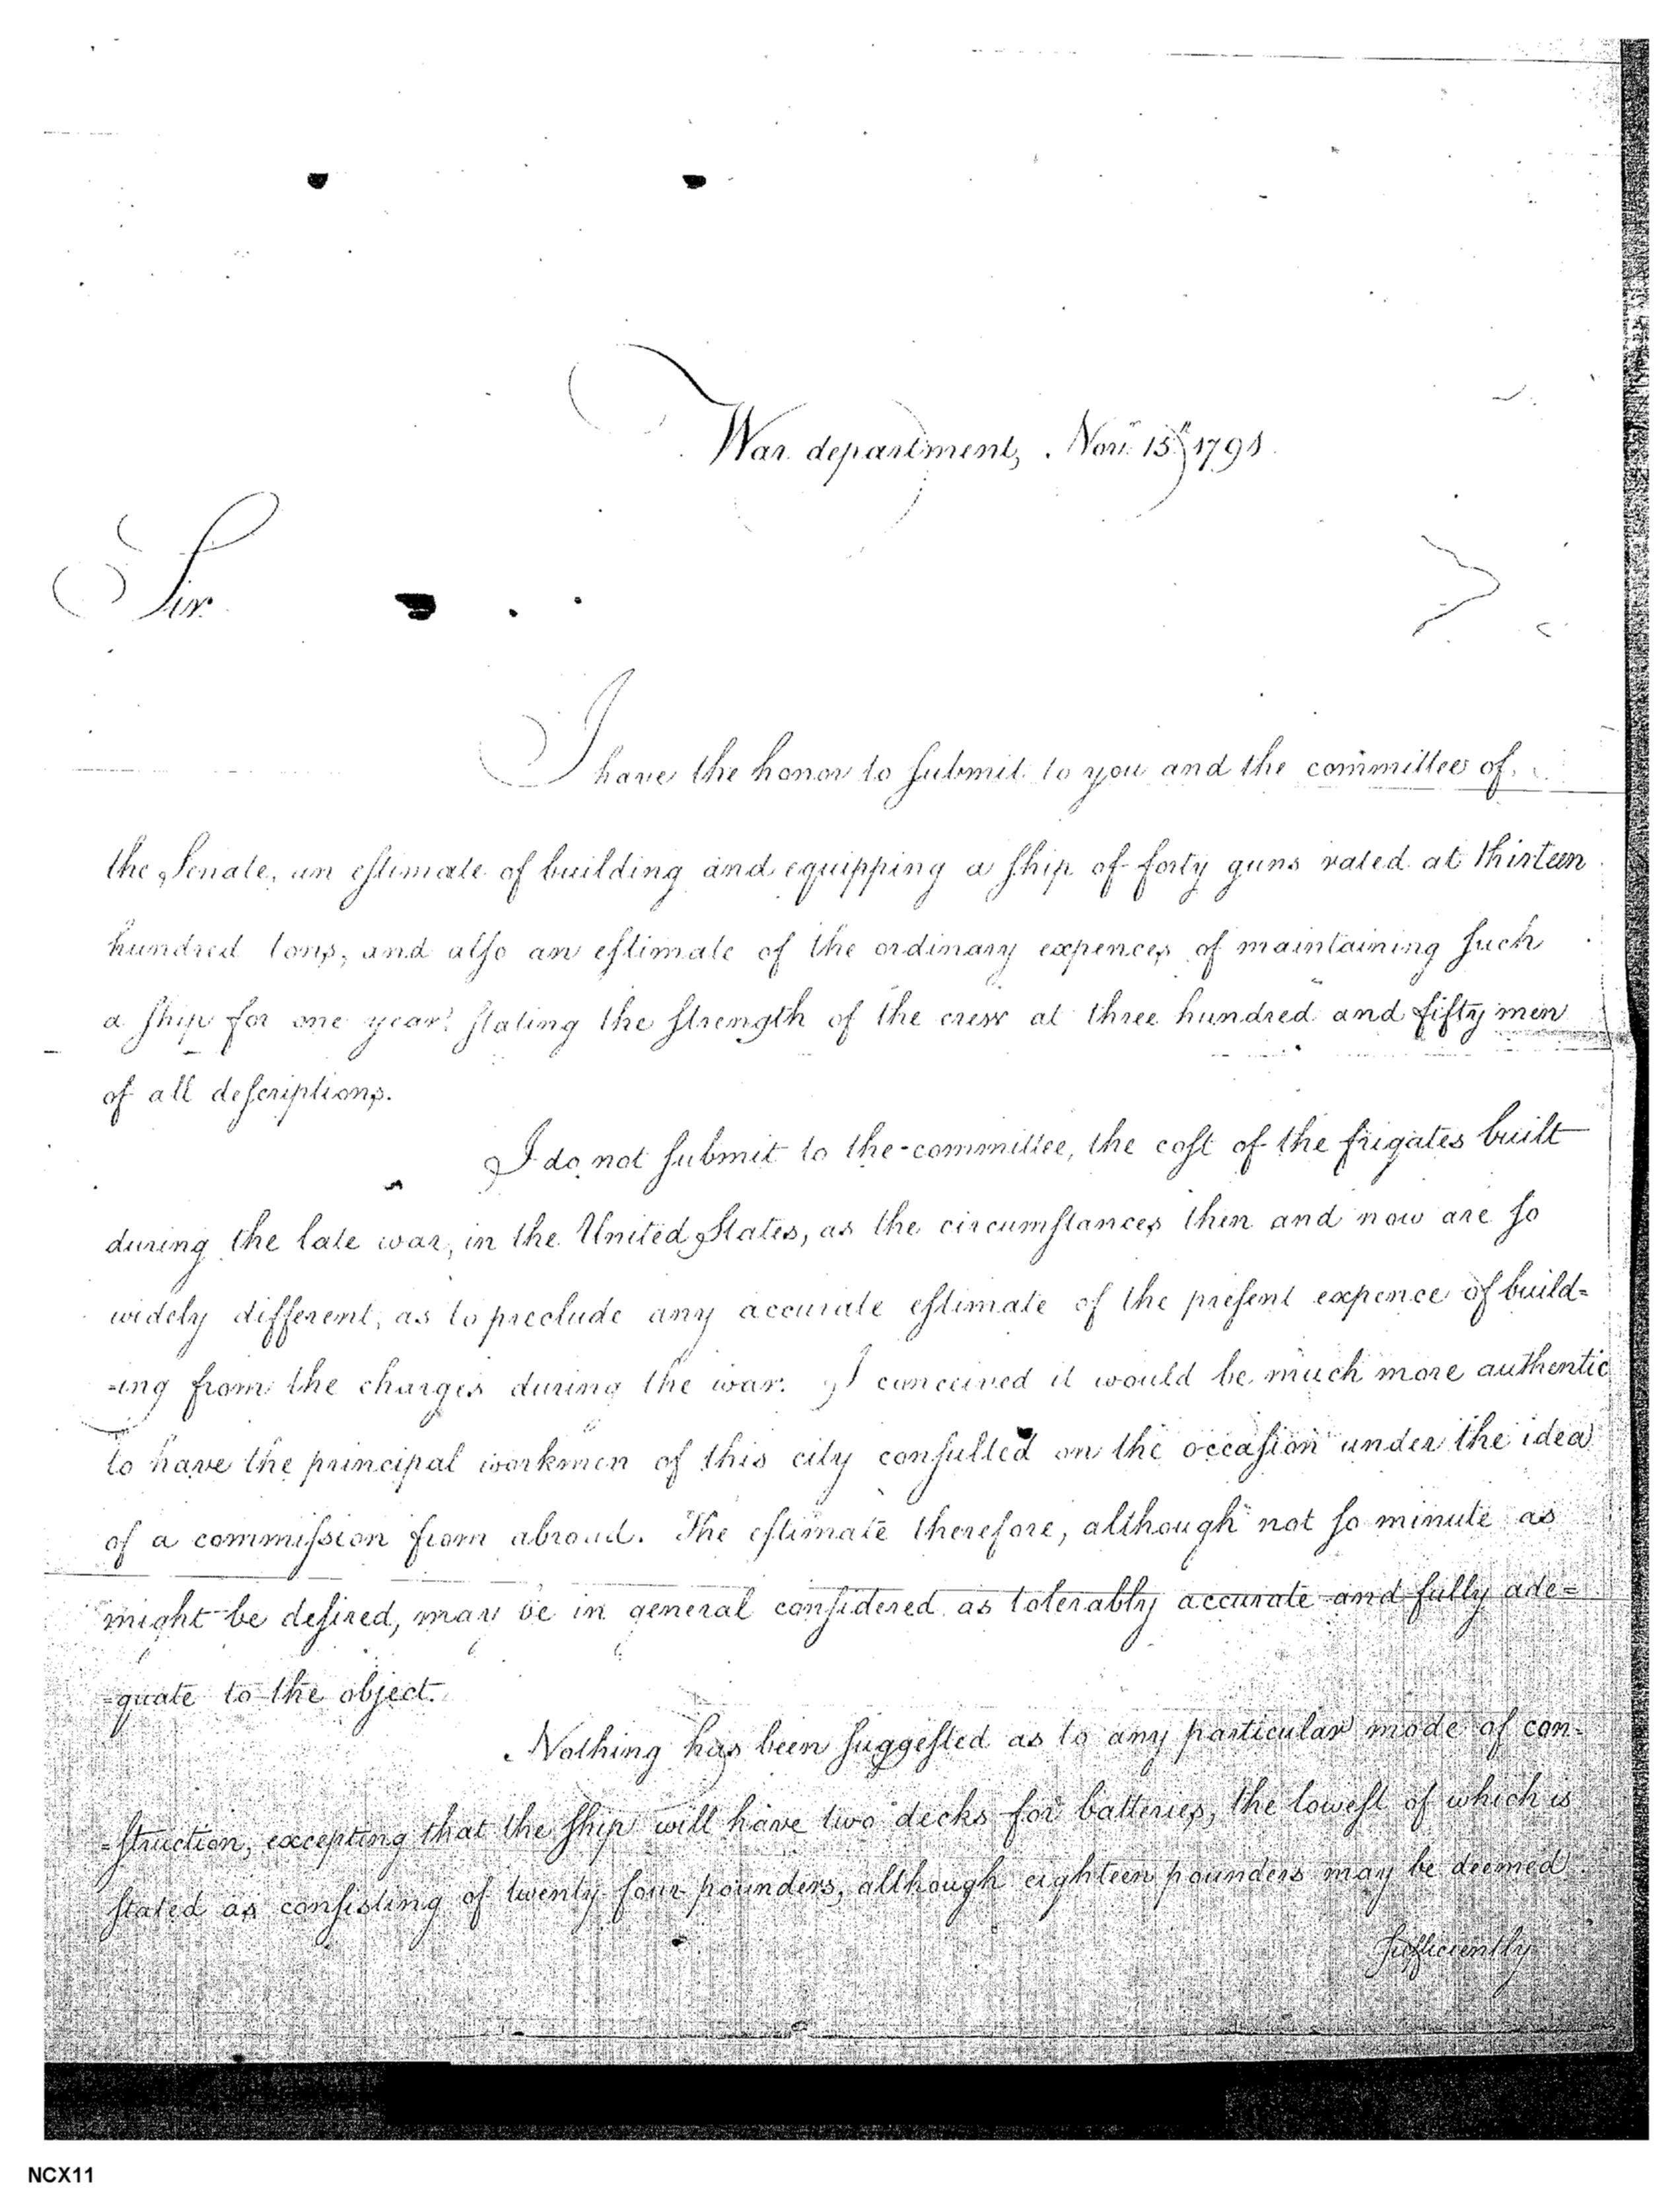 War department, Novr. 15th 1791
Sir.
I have the honor to submit to you and the committee of
the Senate, an estimate of building and equipping a ship of forty guns rated at thirteen
hundred tons, and also an estimate of the ordinary expences of maintaining such
a ship for one year; stating the strength of the crew at three hundred and fifty men
of all descriptions.
I do not submit to the committee, the cost of the frigates built
during the late war, in the United States, as the circumstances then and now are so
widely different, as to preclude any accurate estimate of the present expence of build=
=ing from the charges during the war. I conceived it would be much more authentic
to have the principal workmen of this city consulted on the occasion under the idea
of a commission from abroad. The estimate therefore, although not so minute as
might be desired, may be in general considered as tolerably accurate and fully ade=
=quate to the object.
Nothing has been suggested as to any particular mode of con-
=struction, excepting that the ship will have two decks for batteries, the lowest of which is
stated as consisting of twenty four pounders, although eighteen pounders may be deemed
sufficiently
NCX11